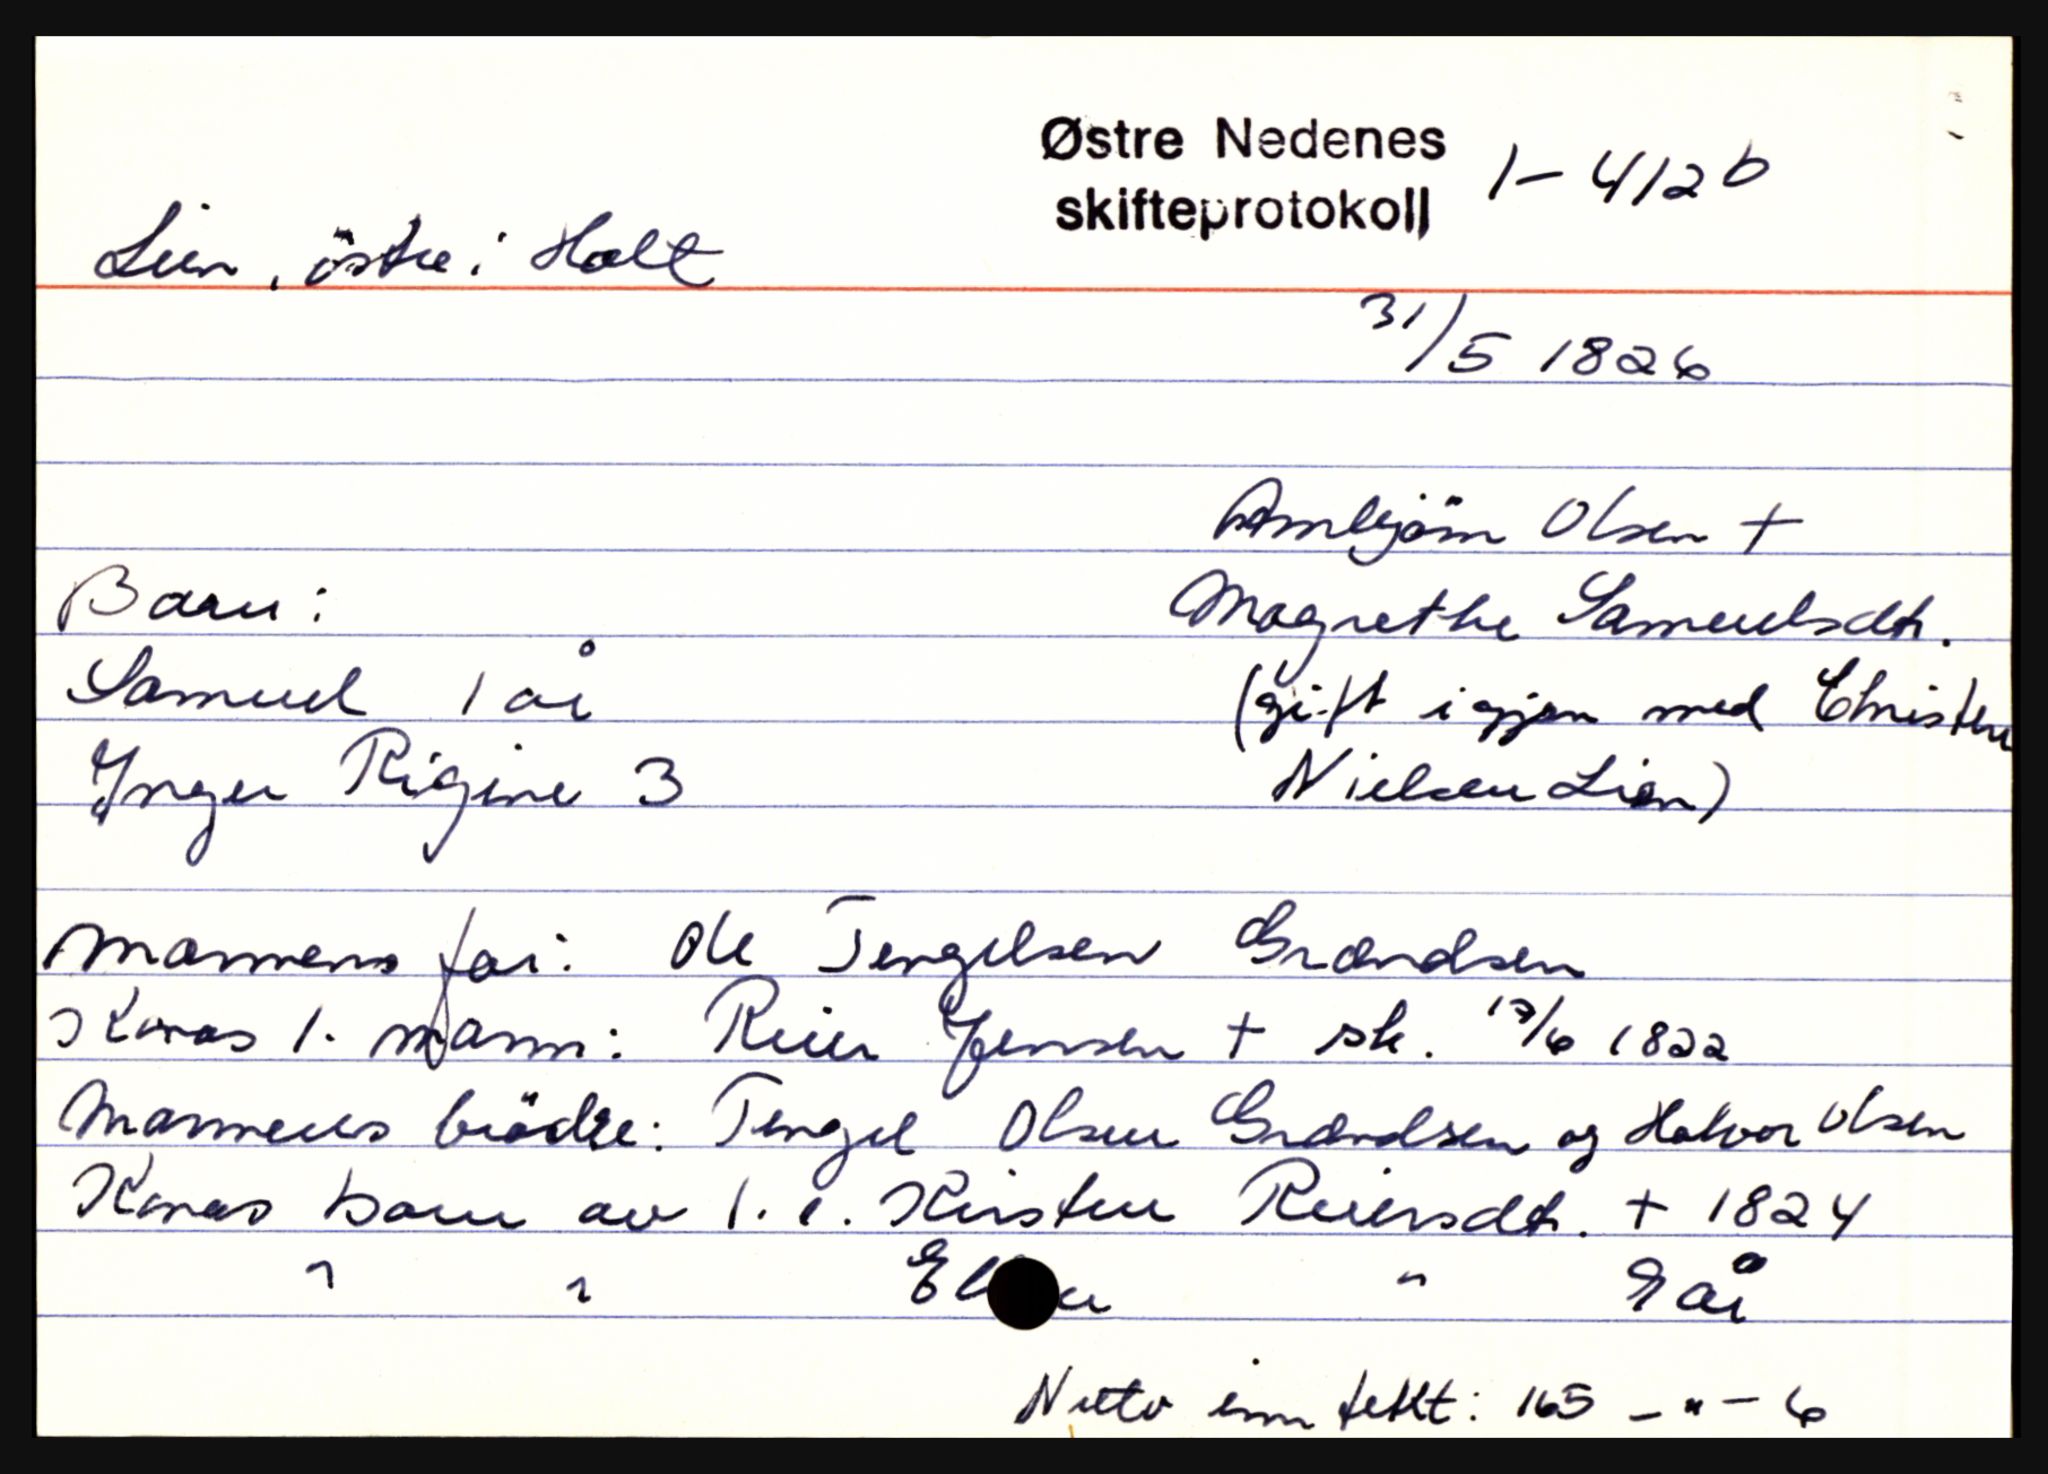 Østre Nedenes
skifteprotokoll 1-412b
Lien, östre i Holt
31/5 1826
Arnbjörn Olsen +
Barn: Magrethe Samuelsdtr.
Samuel 1 år (gift igjen med Christen
Inger Rigine 3 Nielsen Lien)
Mannens far: Ole Tengelsen Grændsen
Konas 1. mann: Reier Jensen + sk. 17/6 1822
Mannens brödre: Tengel Olsen Grændsen og Halvor Olsen
Konas barn av 1. e. Kirsten Reiersdtr. + 1824
" " " 9 år
Netto inntekt: 165 - " - 6